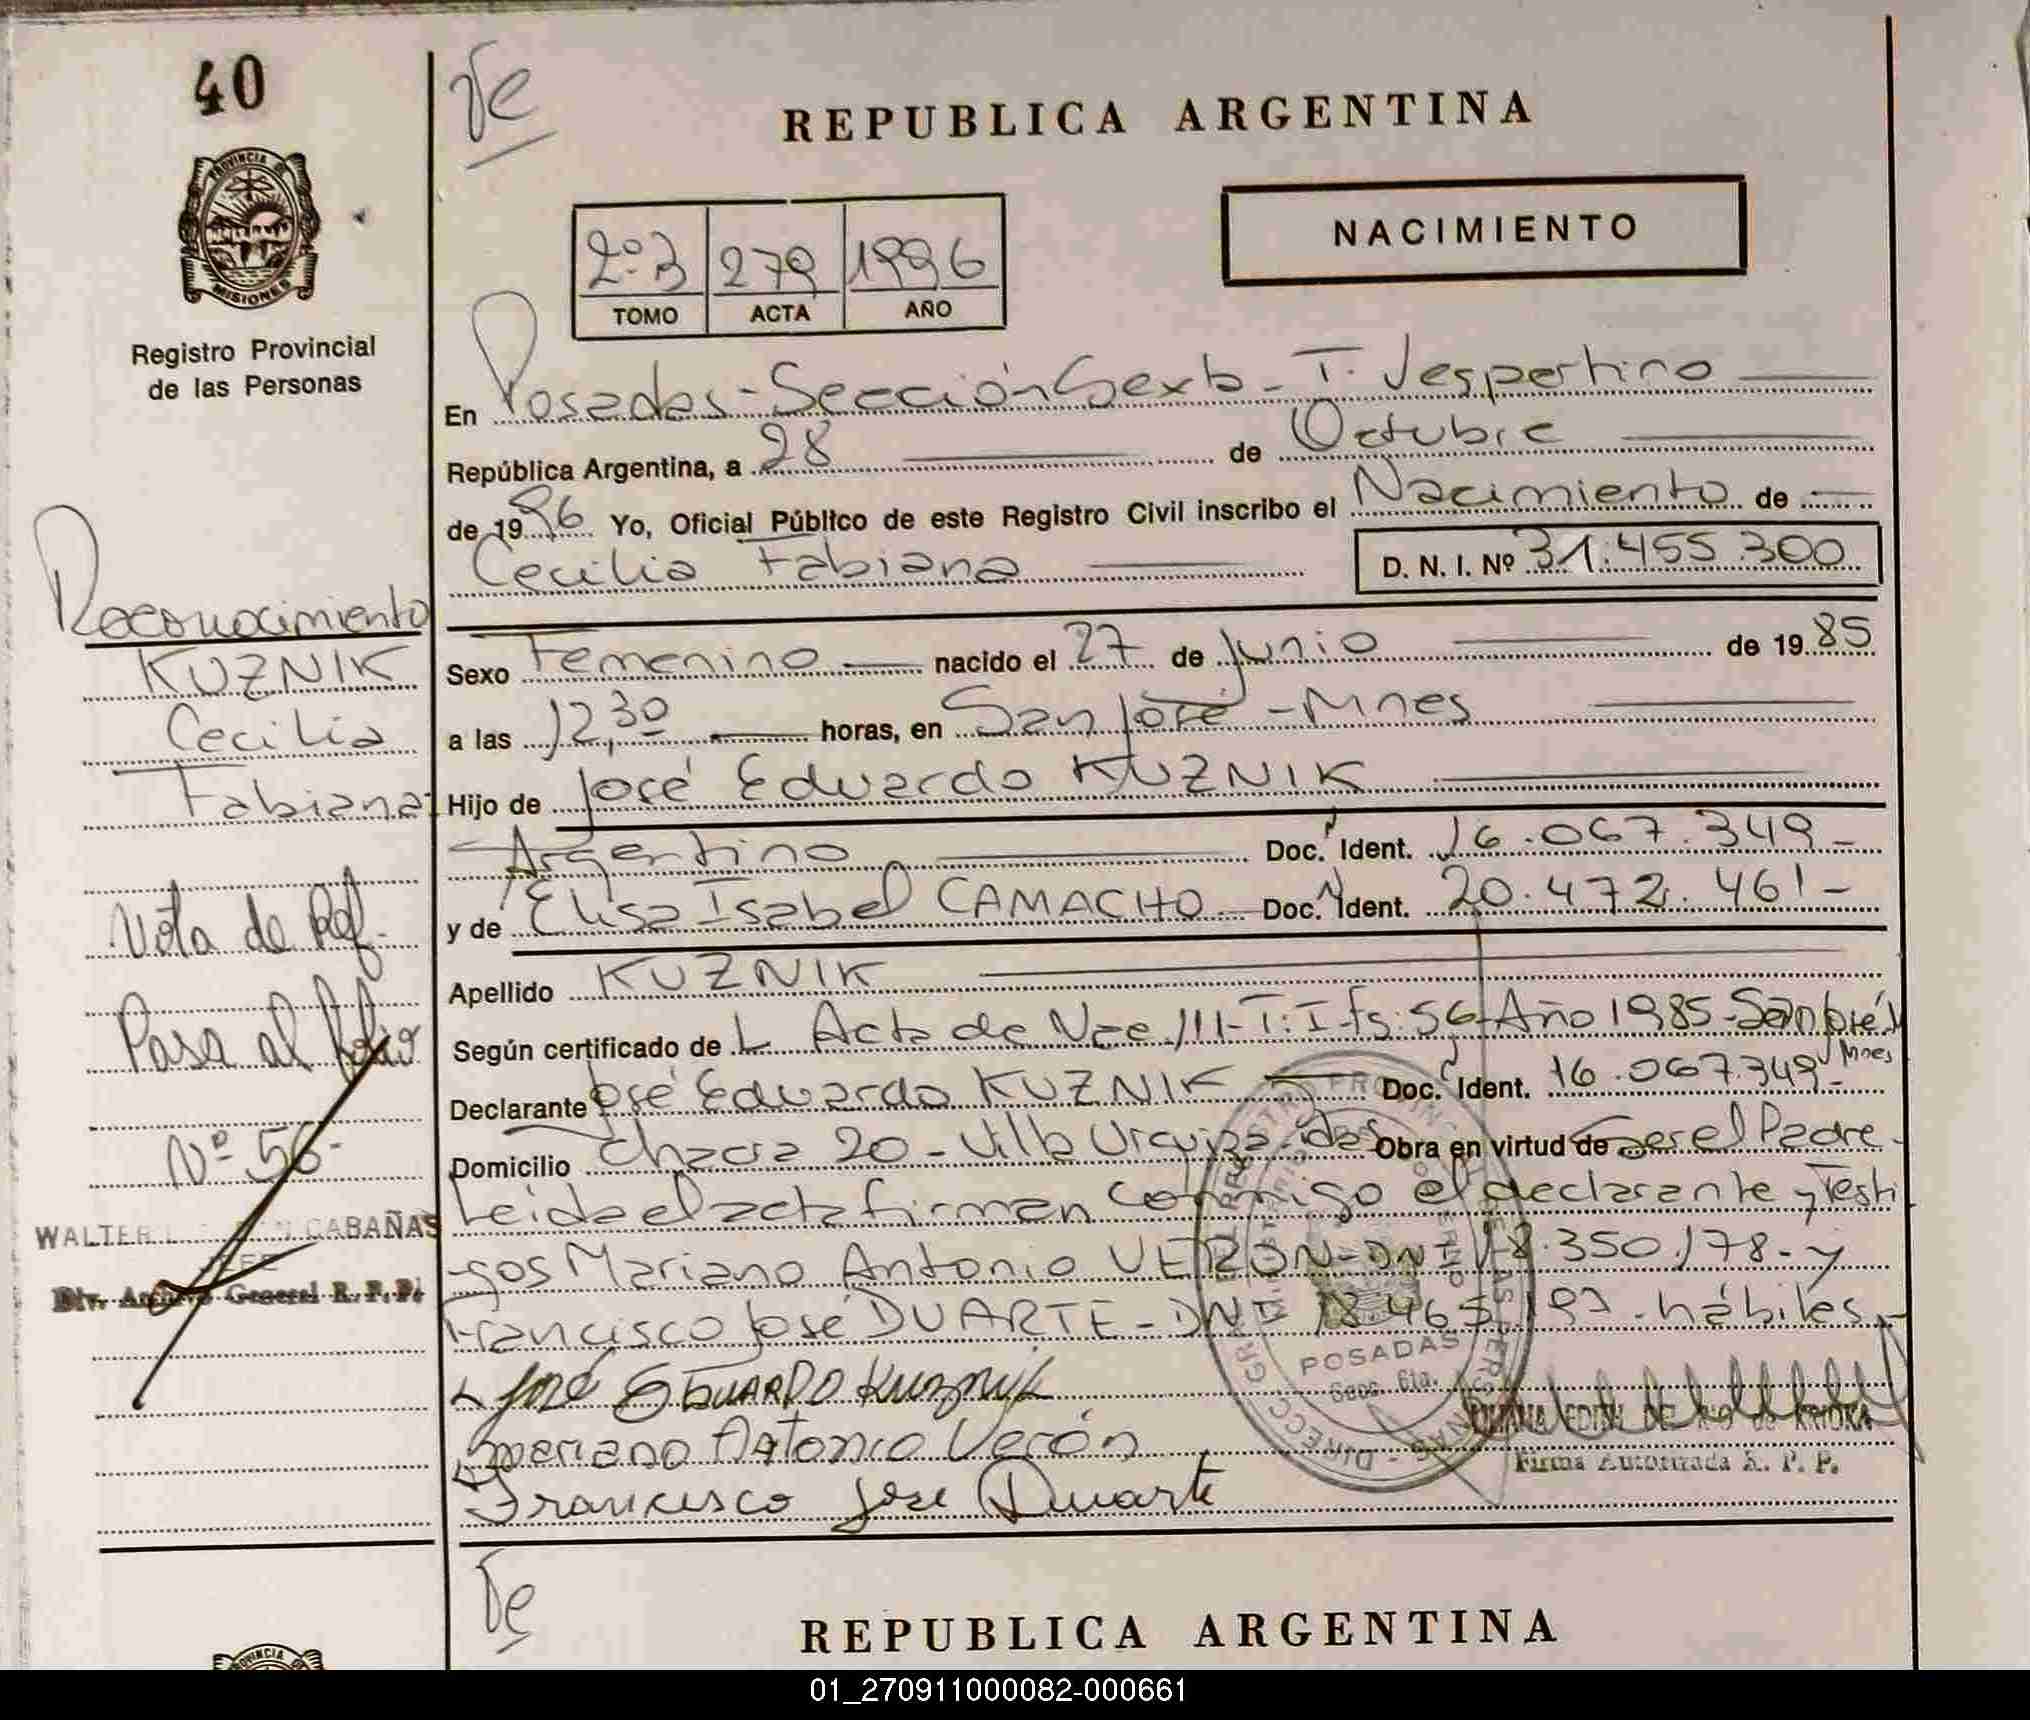 40
PROVINCIA DE
MISIONES
Registro Provincial
de las Personas
REPUBLICA ARGENTINA
NACIMIENTO
2º B 279 1996
TOMO ACTA AÑO
En Posadas - Sección Sexta - T. Vespertino
República Argentina, a 28 de Octubre
de 1996 Yo, Oficial Público de este Registro Civil inscribo el Nacimiento de
Cecilia Fabiana D. N. I. Nº 31.455.300
Sexo Femenino nacido el 27 de Junio de 1985
a las 12,30 horas, en San José - Mnes
Hijo de José Eduardo KUZNIK
Argentino Doc. Ident. 16.067.349-
y de Elisa Isabel CAMACHO Doc. Ident. 20.472.461-
Apellido KUZNIK
Según certificado de L Acta de Nac. 111-T:I-fs:56-Año 1985-San José
Mnes
Declarante José Eduardo KUZNIK Doc. Ident. 16.067.349-
Domicilio Chacra 20 - Villa Urquiza - Obra en virtud de Ser el Padre-
Leida el acta firman conmigo el declarante y Testi
gos Mariano Antonio VERON-DNI 18.350.178- y
Francisco José DUARTE - DNI 18.465.197 - hábiles
José EDUARDO Kuznik
mariano Antonio Verón
Francisco Jose Duarte
POSADAS
Secc. 6ta.
Firma Autorizada R. P. P.
Reconocimiento
KUZNIK
Cecilia
Fabiana
Nota de Ref.
Pasa al folio
Nº 56-
WALTER CABAÑAS
JEFE
Div. Archivo General R. P. P.
REPUBLICA ARGENTINA
01_270911000082-000661